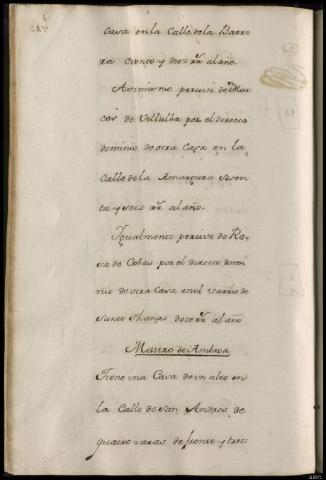 Casa en la Calle de la Barre
ra ciento y diez rr. al año.
Asimismo percive de Mar
cos de Villalba por el directo
dominio de otra Casa en la
Calle de la Amargura sesen
ta y seis rr. al año.
Igualmente percive de Ro
sa de Cobas por el directo domi
nio de otra Casa en el varrio de
Santo Thomas doce rr. al año
Mauro de Ambroa
Tiene una Casa de un alto en
la Calle de San Andres, de
quatro varas de frente y trece